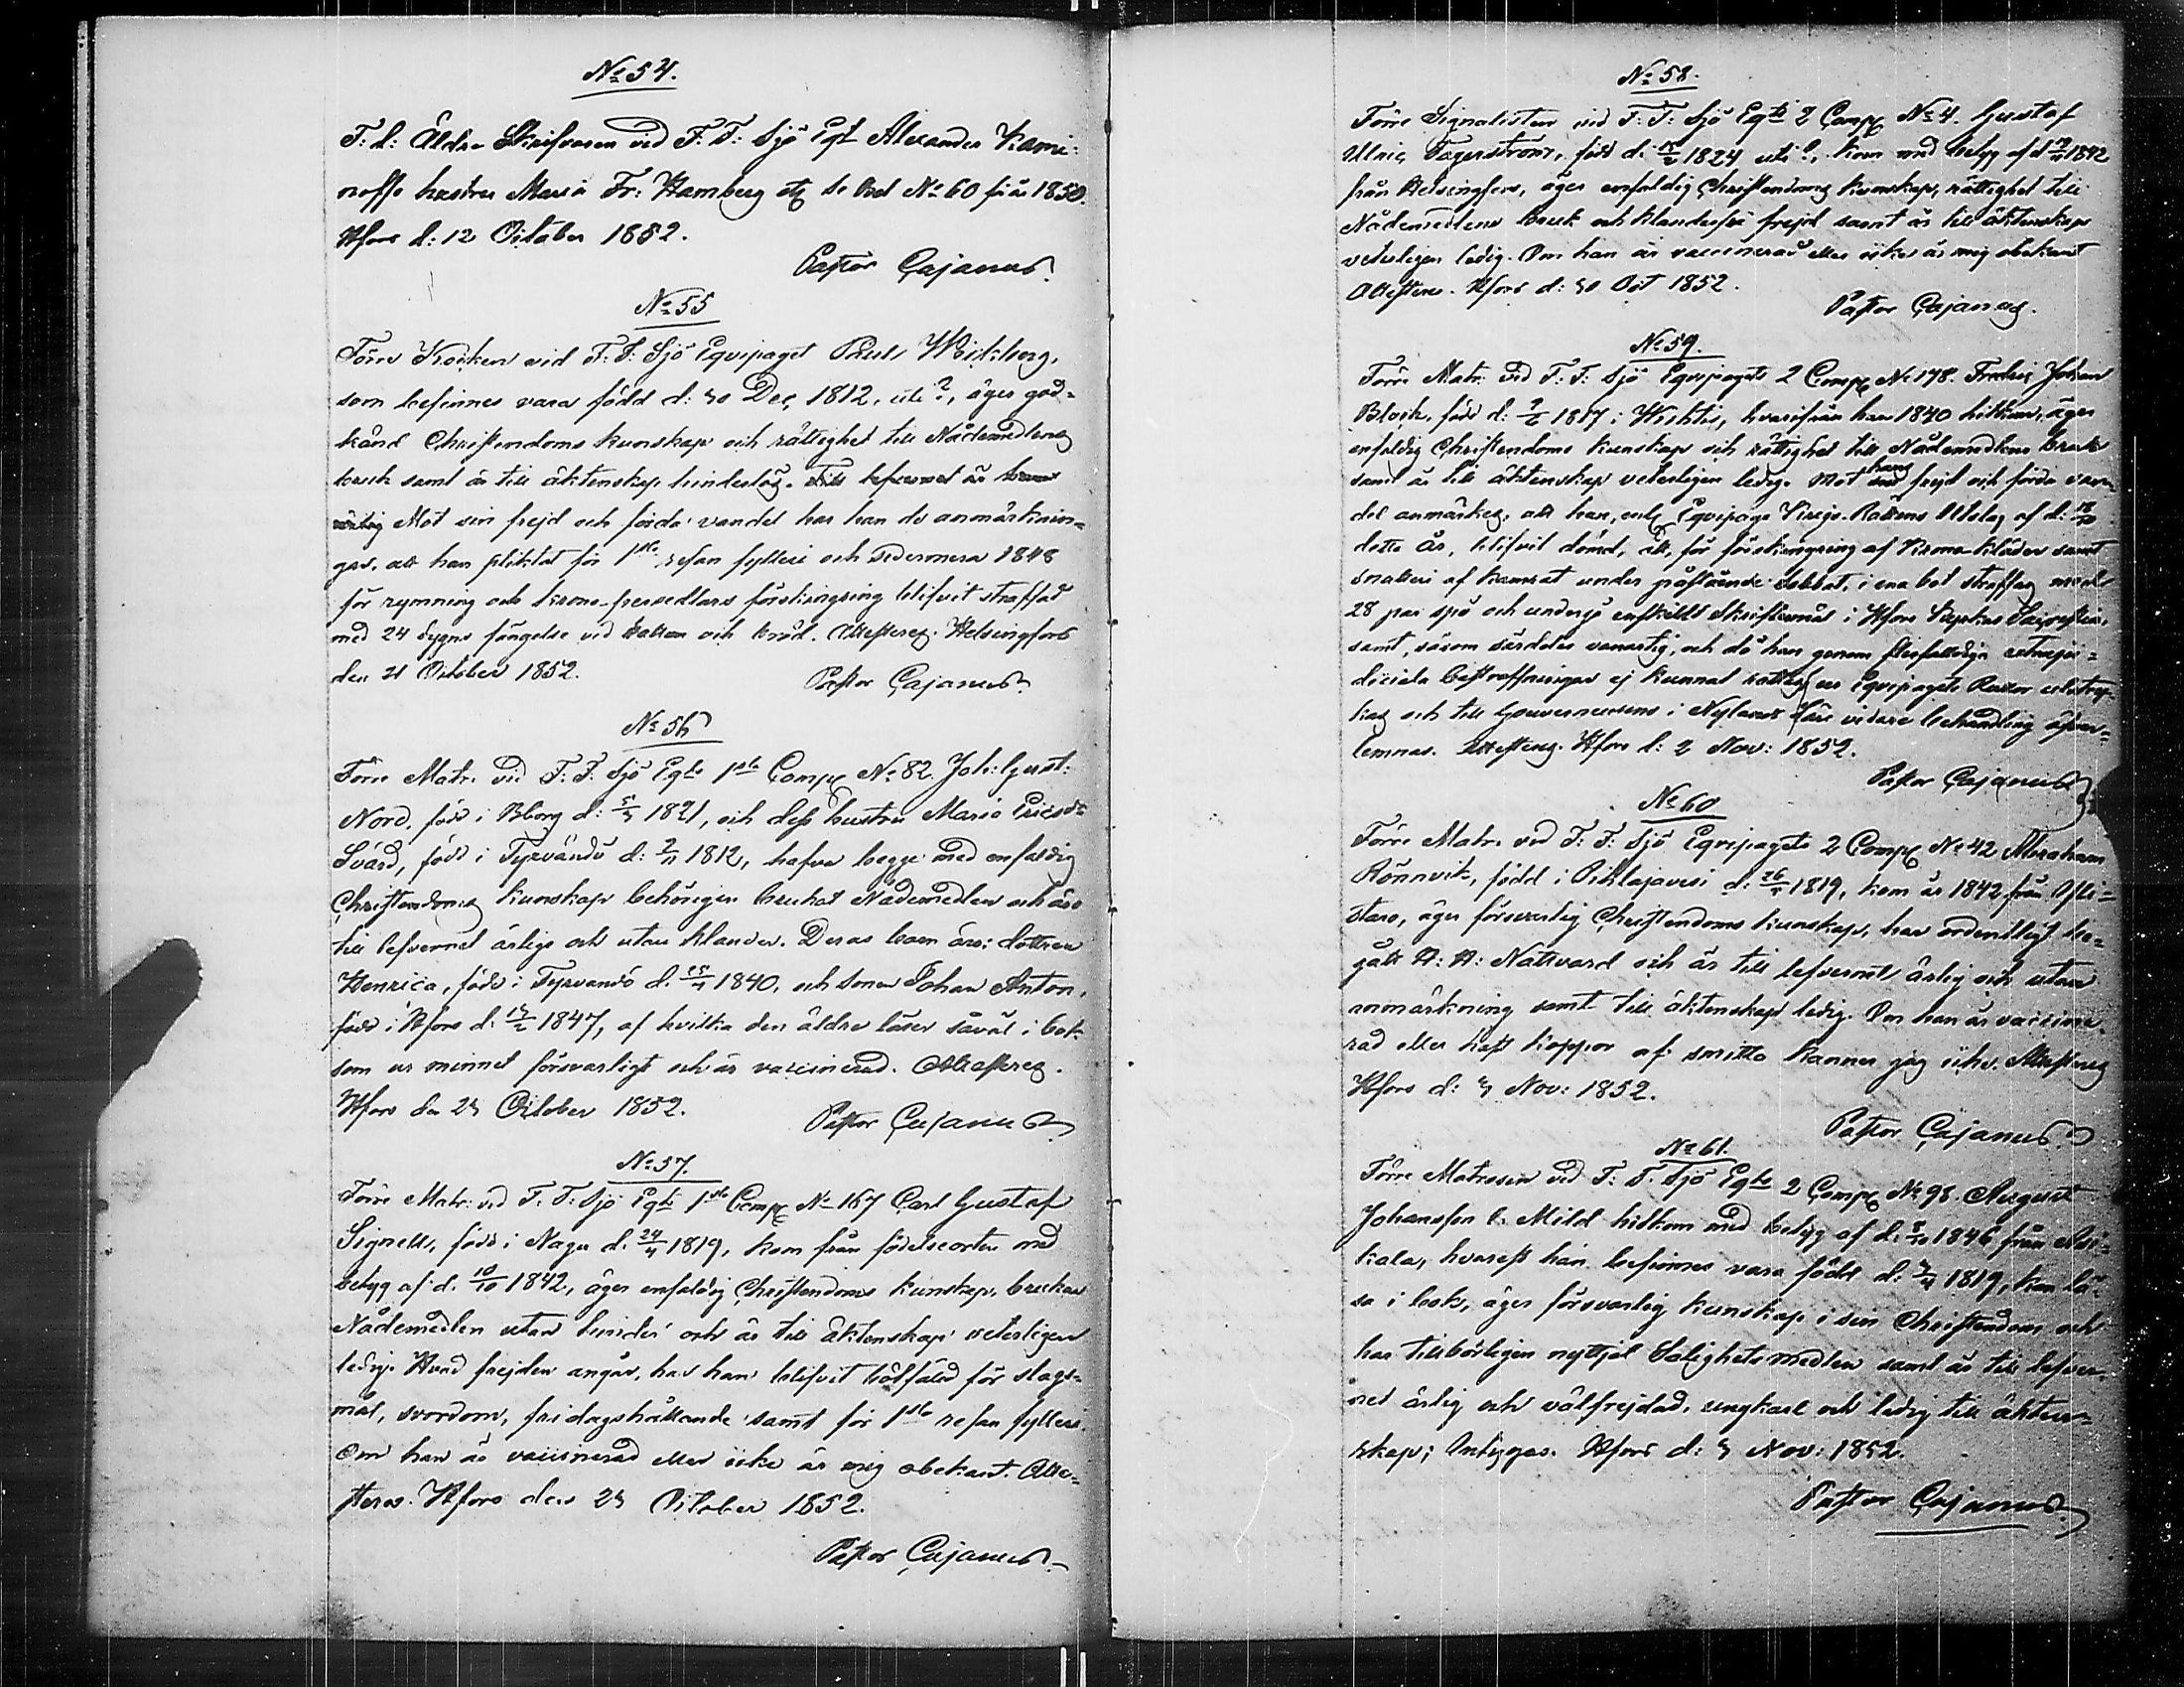 No 54.
F. d. Äldre Skrifvaren vid F. F. Sjö Eqt Alexander Kami-
noffs hustru Maria Fr: Hamberg etc se Bref No 60 för år 1850.
Hfors d: 12 October 1852.
Pastor Cajanus.
No 55
Förre Kocken vid F. F. Sjö Equipaget Paul Wickberg,
som befinnes vara född d: 30 Dec 1812, uti ?, äger god-
känd Christendoms kunskap och rättighet till Nådemedlens
bruk samt är till äktenskap hinderslös. Till lefvernet är
Mot sin frejd och förda vandel har han de anmärknin-
gar, att han pliktat för 1sta resan fylleri och sedermera 1848
för rymning och Krono-persedlars förskingring blifvit straffad
med 24 dygns fängelse vid vatten och bröd. Attesteras. Helsingfors
den 21 October 1852.
Pastor Cajanus.
No 56
Förre Matr. vid F. F. Sjö Eqts 1sta Comp. No 82. Joh: Gust:
Nord, född i Bborg d: 5/3 1821, och dess hustru Maria Ericsdr
Svärd, född i Tyrvändö d: 2/11 1812, hafva begge med enfaldig
Christendoms kunskap behörigen brukat Nådemedlen och äro
till lefvernet ärlige och utan klander. Deras barn äro: dottren
Henrica, född i Tyrvändö d. 1840, och sonen Johan Anton,
född i Hfors d. 1847, af hvilka den äldre läser såväl i bok
som ur minnet försvarligt och är vaccinerad. Attesteras.
Hfors den 23 October 1852.
Pastor Cajanus
No 57.
Förre Matr. vid F. F. Sjö Eqts 1sta Comp. No 167 Carl Gustaf
Signell, född i Nagu d. 24/4 1819, kom från födelseorten med
betyg af d. 10/10 1842, äger enfaldig Christendoms kunskap, brukar
Nådemedlen utan hinder och är till äktenskap veterligen
ledig. Hvad frejden angår, har han blifvit bötfäld för slags-
mål, svordom, fridagshållande samt för 1sta resan fylleri.
Om han är vaccinerad eller icke är mig obekant. Atte-
steras. Hfors den 23 October 1852.
Pastor Cajanus.
No 58.
Förre Signalisten vid F. F. Sjö Eqts 2 Comp. No 4. Gustaf
Ulric Fagerström, född d. 1824 uti ?, kom med betyg af d 1842
från Helsingfors, äger enfaldig Christendoms kunskap, rättighet till
Nådemedlens bruk och klanderfri frejd samt är till äktenskap
veterligen ledig. Om han är vaccinerad eller icke är mig obekant
Attesteras. Hfors d: 30 Oct 1852.
Pastor Cajanus.
No 59.
Förre Matr. vid F. F. Sjö Equipagets 2 Comp. No 178. Fredric Johan
Block, född d: 1817 i Wichtis, hvarifrån han 1840 hitkom, äger
enfaldig Christendoms kunskap och rättighet till Nådemedlens bruk
samt är till äktenskap veterligen ledig. Mot hans frejd och förda van-
del anmärkes, att han, enl. Equipage Krigs-Rättens Utslag af d:
detta år, blifvit dömd, att, för förskingring af Krono-kläder samt
snatteri af kamrat under påstående sabbat, i ena bot straffas med
28 par spö och undergå enskildt skriftermål i Hfors Kyrkas Sacristia,
samt, såsom särdeles vanartig, och då han genom flerfaldiga extraju-
diciela bestraffningar ej kunnat rättas, ur Equipagets Rullor utstry-
kas och till Gouverneuren i Nylands Län vidare behandling öfver-
lemnas. Attesteras. Hfors d: 2 Nov: 1852.
Pastor Cajanus
No 60
Förre Matr. vid F. F. Sjö Equipagets 2 Comp. No 42 Abraham
Rönnvik, född i Pihlajavesi d: 26/ 1819, kom år 1842 från Ylli-
staro, äger försvarlig Christendoms kunskap, har ordentligt be-
gått H: H: Nattvard och är till lefvernet ärlig och utan
anmärkning samt till äktenskap ledig. Om han är vaccine-
rad eller haft koppor af smitta känner jag icke. Attesteras
Hfors d: 3 Nov: 1852.
Pastor Cajanus
No 61.
Förre Matrosen vid F. F. Sjö Eqts 2 Comp. No 98. August
Johansson l. Mild hitkom med betyg af d: 1846 från Asi-
kala, hvarest han befinnes vara född d: 1819, kan lä-
sa i bok, äger försvarlig kunskap i sin Christendom och
har tillbörligen nyttjat Salighetsmedlen samt är till lefver-
net ärlig och välfrejdad, ungkarl och ledig till äkten-
skap; intygas. Hfors d: 3 Nov: 1852.
Pastor Cajanus